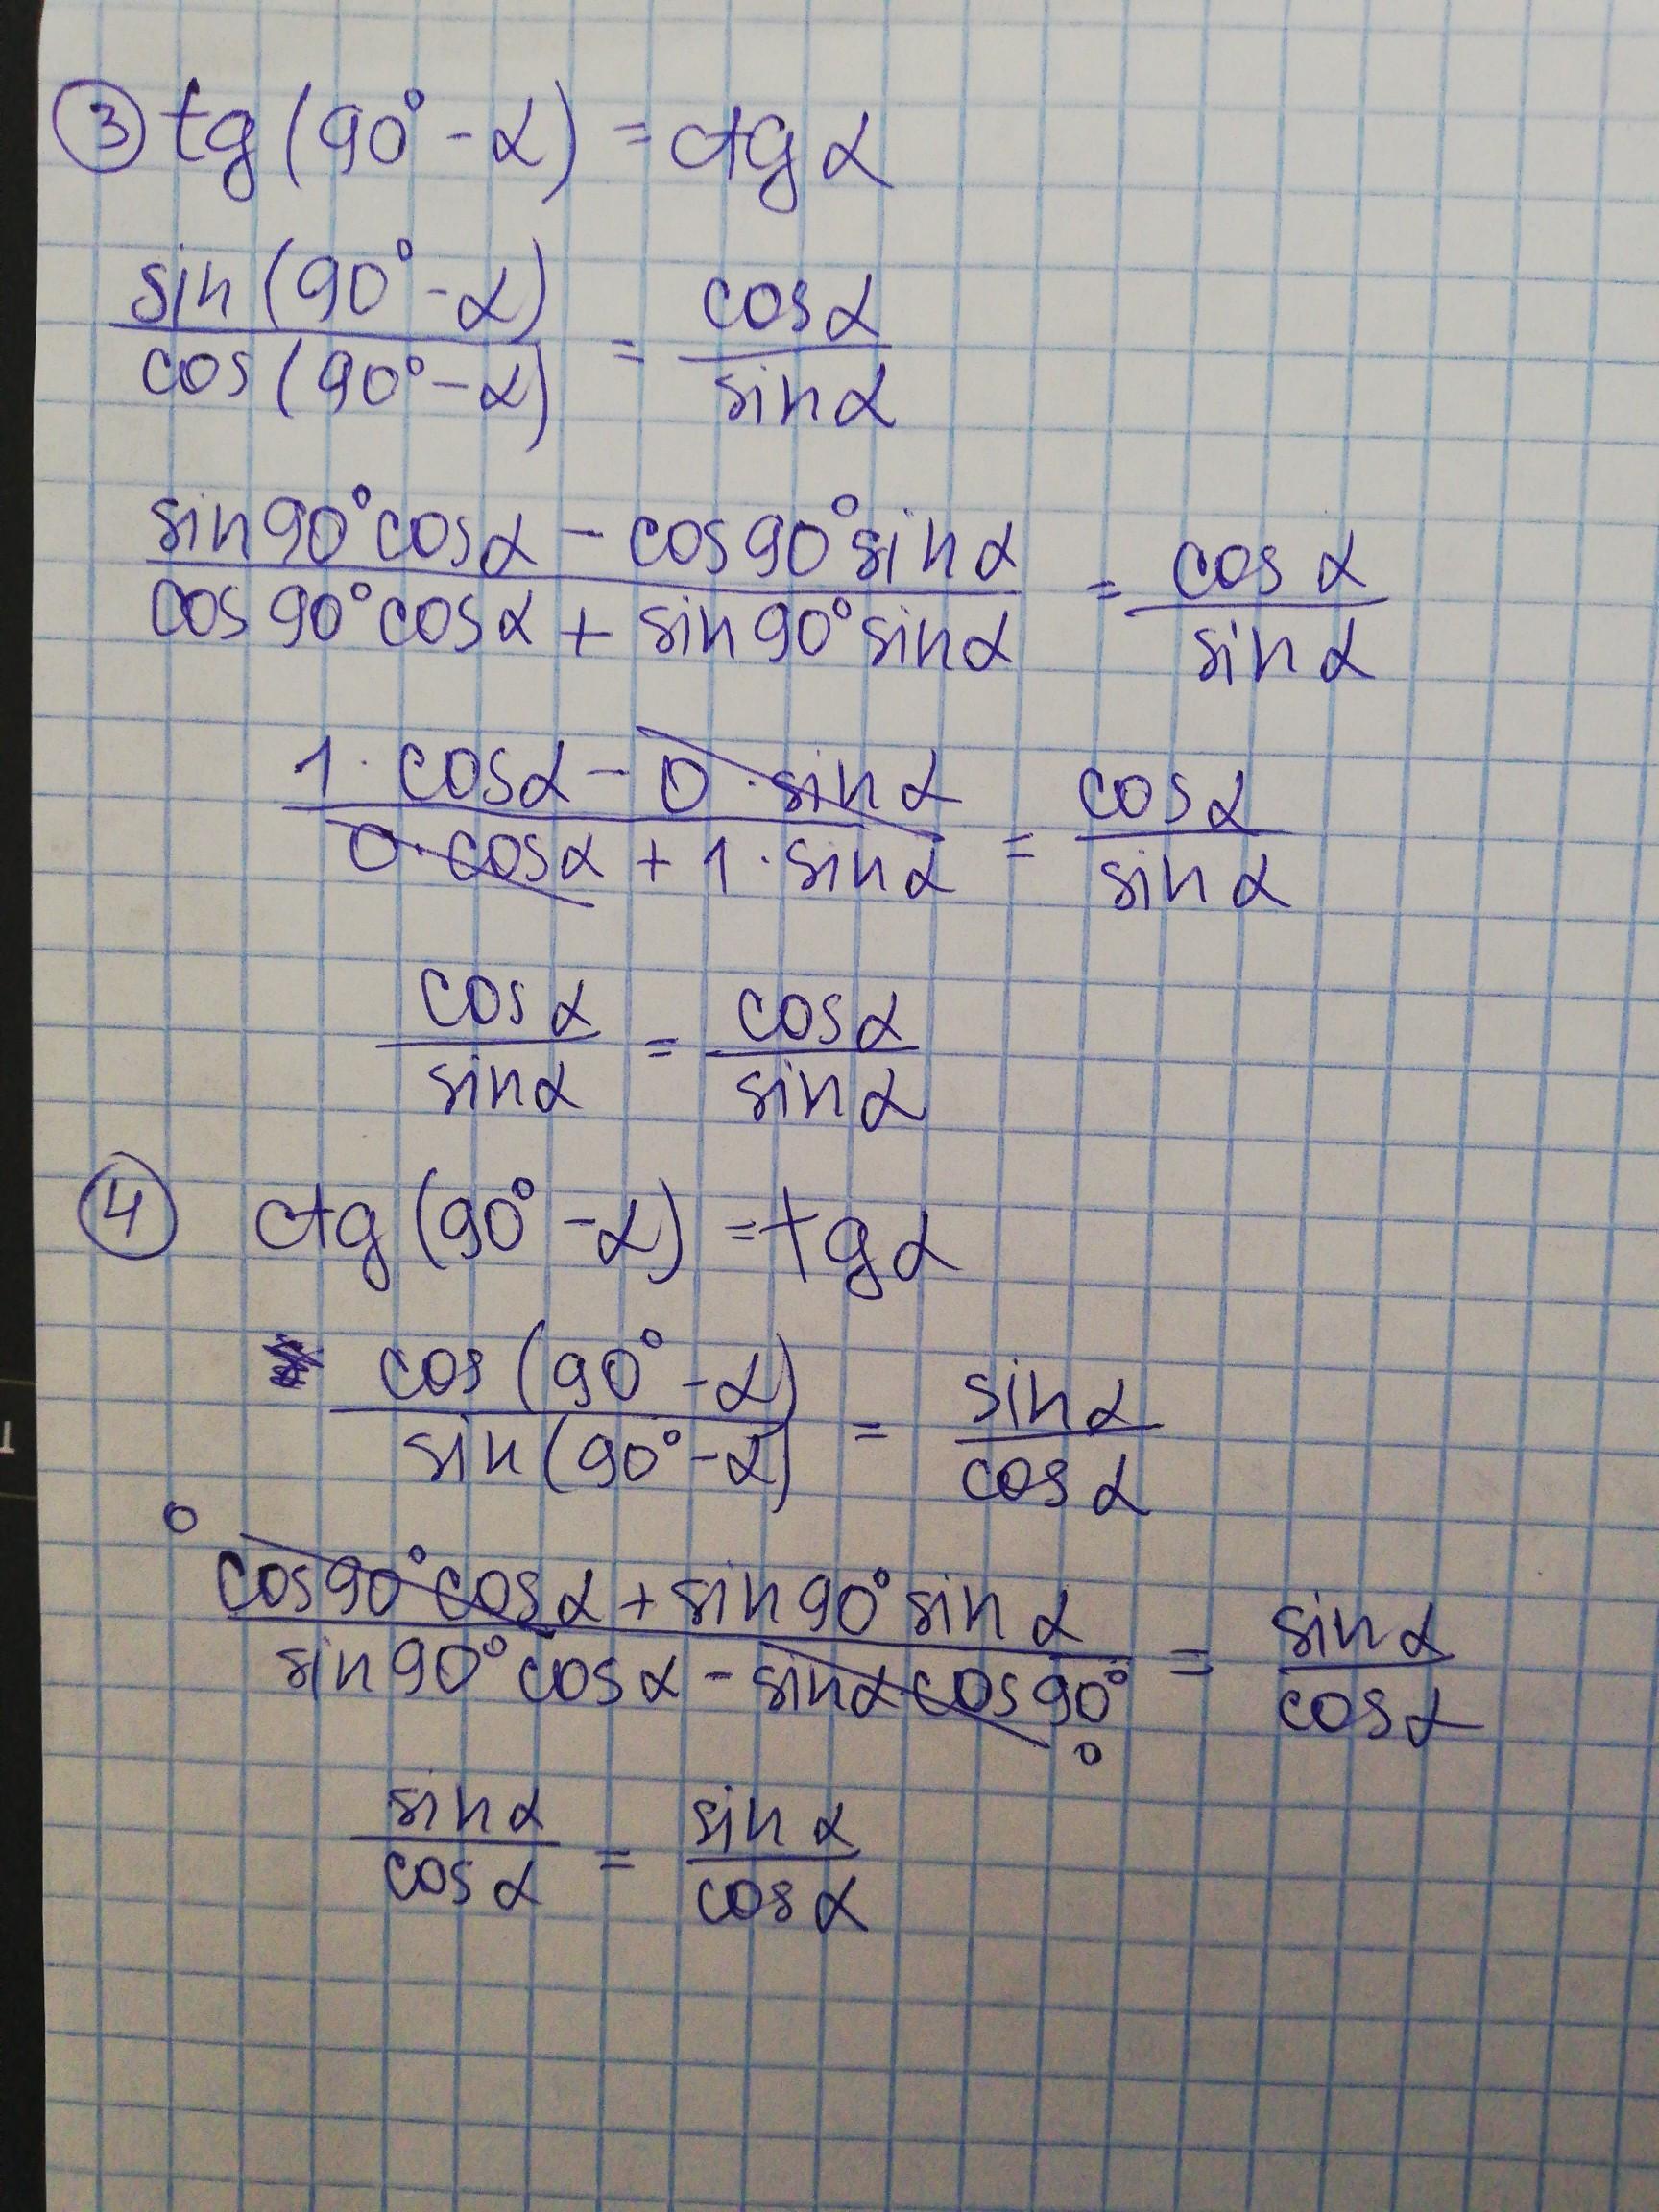 ③ tg(90° - α) = ctg α
sin(90° - α) / cos(90° - α) = cosα / sinα
sin90°cosα - cos90°sinα / cos90°cosα + sin90°sinα = cos α / sin α
1 · cosα - 0 · sinα / 0 · cosα + 1 · sinα = cosα / sinα
cos α / sinα = cosα / sinα
④ ctg(90° - α) = tgα
cos(90° - α) / sin(90° - α) = sinα / cosα
0
cos90°cosα + sin90°sin α / sin90°cosα - sinαcos90° = sinα / cosα
0
sinα / cosα = sinα / cosα